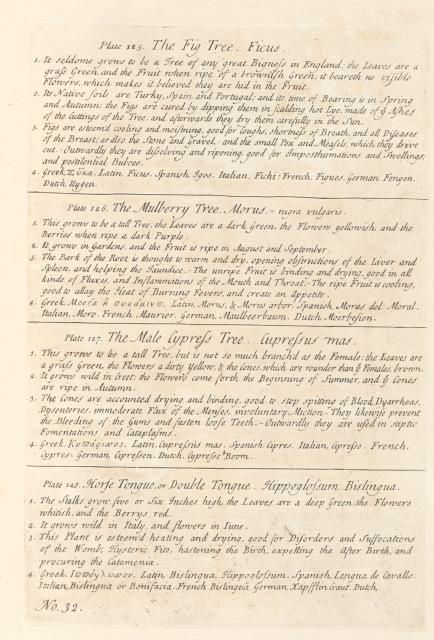 Plate 125. The Fig Tree. Ficus.
1. It seldome grows to be a Tree of any great Bigneſs in England; the Leaves are a
graſs Green, and the Fruit when ripe of a brownish Green; it beareth no visible
Flowers, which makes it believed they are hid in the Fruit.
2. Its Native soils are Turky, Spain and Portugal; and its time of Bearing is in Spring
and Autumn; the Figs are cured by dipping them in scalding hot Lye, made of yͤ Aſhes
of the Cuttings of the Tree, and afterwards they dry them carefully in the Sun.
3. Figs are esteem'd cooling and moistning, good for Coughs, shortneſs of Breath, and all Diſeases
of the Breast; as also the Stone and Gravel,- and the small Pox and Measels, which they drive
out.- Outwardly they are diſsolving and ripening, good for Imposthumations, and Swellings;
and pestilential Buboes.
4. Greek, Σῦκα. Latin, Ficus. Spanish, Igos. Italian, Fichi. French, Figues. German, Fengen.
Dutch, Uygen.
Plate 126. The Mulberry Tree. Morus.- nigra vulgaris.
1. This grows to be a tall Tree, the Leaves are a dark Green, the Flowers yellowish, and the
Berries when ripe a dark Purple.
2. It grows in Gardens, and the Fruit is ripe in August and September.
3. The Bark of the Root is thought to warm and dry, opening obstructions of the Liver and
Spleen, and helping the Jaundice.- The unripe Fruit is binding and drying, good in all
kinds of Fluxes, and Inflammations of the Mouth and Throat.- The ripe Fruit is cooling,
good to allay the Heat of Burning Fevers, and create an Appetite.
4. Greek, Μορέα ἢ συκάμινος. Latin, Morus, & Morus arbor. Spanish, Moras del Moral.
Italian, Moro. French, Maurier. German, Maulbeerbaum. Dutch, Moerbesien.
Plate 127. The Male Cypreſs Tree. Cupreſsus mas.
1. This grows to be a tall Tree, but is not so much branch'd as the Female; the Leaves are
a graſs Green, the Flowers a dirty Yellow, & the Cones, which are rounder than yͤ Females, brown.
2. It grows wild in Creet; the Flowers come forth the Beginning of Summer, and yͤ Cones
are ripe in Autumn.
3. The Cones are accounted drying and binding, good to stop spitting of Blood, Dyarrhoeas,
Dysenteries, immoderate Flux of the Menses, involuntary Miction.- They likewise prevent
the Bleeding of the Gums and fasten loose Teeth.- Outwardly they are uſed in stiptic
Fomentations and Cataplasms.
4. Greek, Κυπάρισσος. Latin, Cupreſsus mas. Spanish, Cipres. Italian, Cipreſso. French,
Cypres. German, Cypreſsen. Dutch, Cypreſse Boom.
Plate 128. Horse Tongue, or Double Tongue. Hippogloſsum Bislingua.
1. The Stalks grow five or Six Inches high, the Leaves are a deep Green, the Flowers
whitish, and the Berrys red.
2. It grows wild in Italy, and flowers in Iune.
3. This Plant is esteem'd heating and drying, good for Disorders and Suffocations
of the Womb, Hysteric Fits, hastening the Birth, expelling the After Birth, and
procuring the Catamenia.
4. Greek, Ἱππόγλωσσον. Latin, Bislingua, Hippogloſsum. Spanish, Lengua de Cavallo.
Italian, Bislingua, or Bonifacia. French, Bislingua. German, Zapfflin Craut. Dutch,
No. 32.